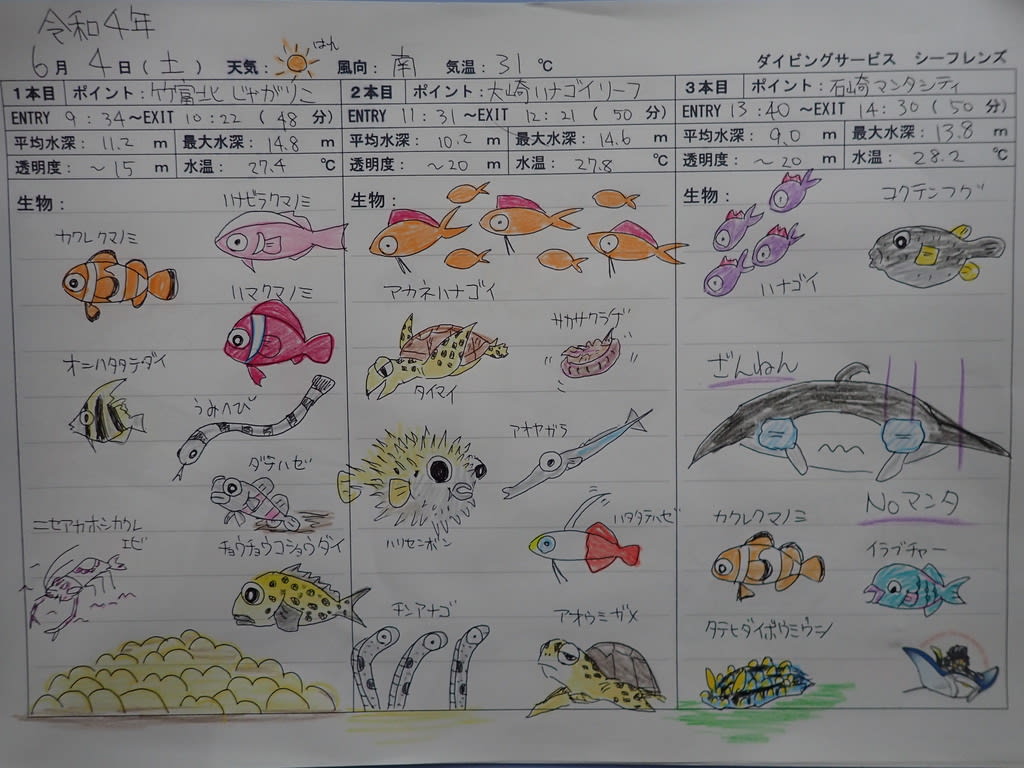 令和4年
はん
6月 4日(土) 天気: 風向:南 気温:31℃
ダイビングサービス シーフレンズ
1本目 ポイント:竹富北 じゃがりこ
ENTRY 9:34~EXIT 10:22 (48分)
平均水深:11.2 m 最大水深:14.8 m
透明度:~15 m 水温:27.4 ℃
生物:
ハナビラクマノミ
カクレクマノミ
ハマクマノミ
オニハタタテダイ
うみへび
ダテハゼ
ニセアカホシカクレエビ
チョウチョウコショウダイ
2本目 ポイント:大崎ハナゴイリーフ
ENTRY 11:31~EXIT 12:21 (50分)
平均水深:10.2 m 最大水深:14.6 m
透明度:~20 m 水温:27.8 ℃
生物:
アカネハナゴイ
サカサクラゲ
タイマイ
アオヤガラ
ハリセンボン
ハタタテハゼ
チンアナゴ
アオウミガメ
3本目 ポイント:石崎マンタシティ
ENTRY 13:40~EXIT 14:30 (50分)
平均水深:9.0 m 最大水深:13.8 m
透明度:~20 m 水温:28.2 ℃
生物:
コクテンフグ
ハナゴイ
ざんねん
Noマンタ
カクレクマノミ
イラブチャー
タテヒダイボウミウシ